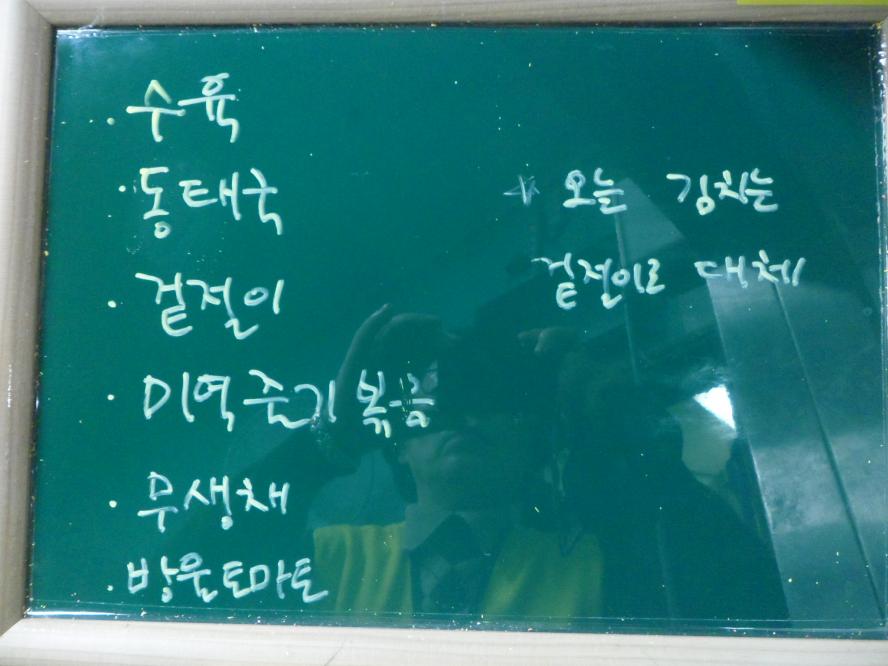 · 수육
· 동태국
· 겉절이
· 미역준기볶음
· 무생채
· 방울토마토
* 오늘 김치는
겉절이로 대체